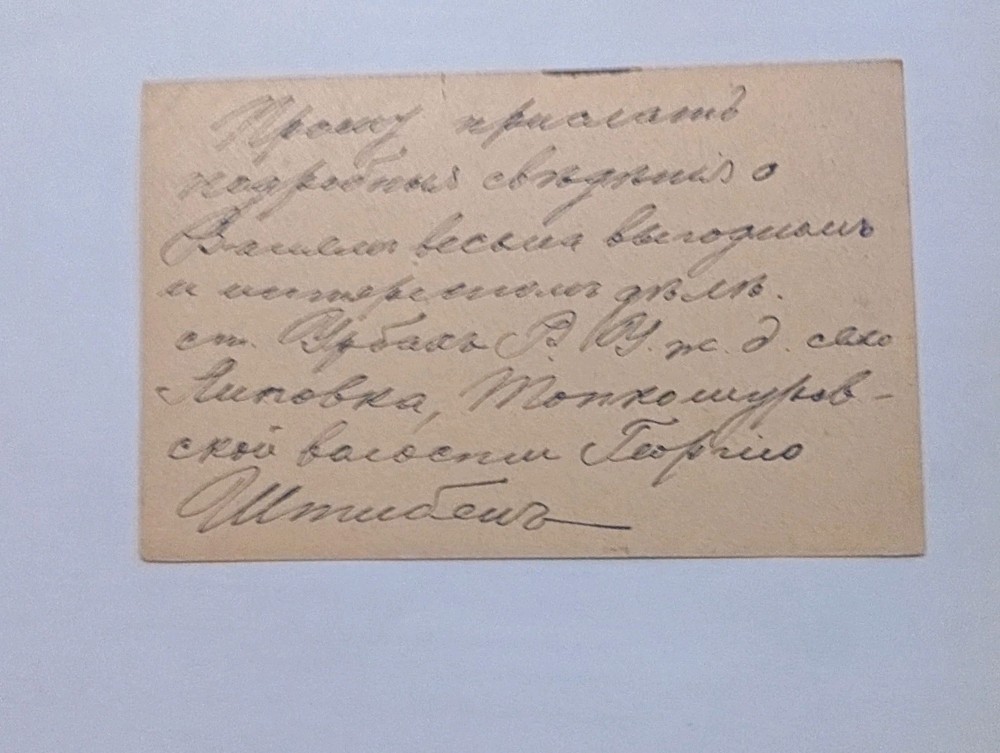 Прошу прислать
подробныя свѣдѣнія о
Вашемъ весьма выгодномъ
и интересномъ дѣлѣ.
ст. Урбахъ Р. У. ж. д. село
Липовка, Тонкошуров-
ской волости Георгію
Штибенъ